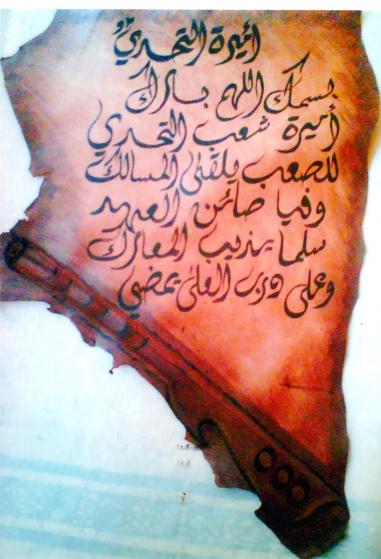 أميرة التحدي
بسمك اللهم بارك
أميرة شعب التحدي
للصعب يلقى المسالك
وفيا صائن العهد
سلما يهذيب المعارك
وعلى درب العلى يمضي